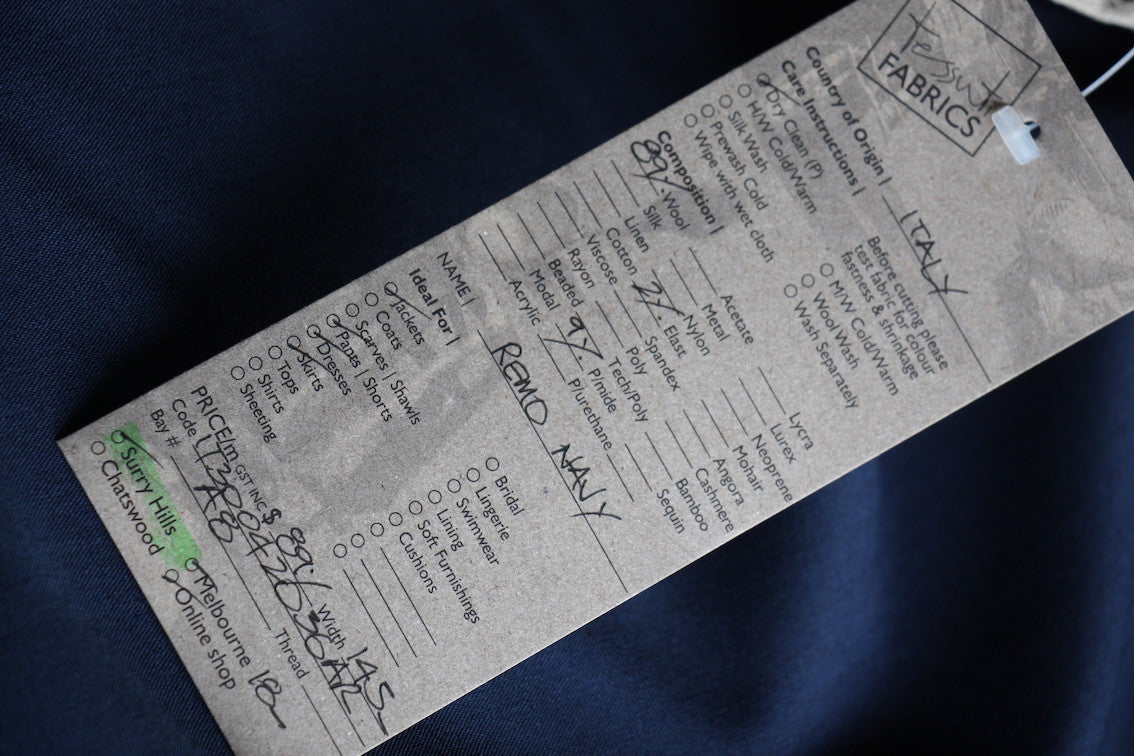 Tessuti
FABRICS
Country of Origin | ITALY
Care Instructions |
Dry Clean (P)
H/W Cold/Warm
Silk Wash
Prewash Cold
Wipe with wet cloth
Before cutting please
test fabric for colour
fastness & shrinkage
M/W Cold/Warm
Wool Wash
Wash Separately
Composition |
89% Wool
Silk
Linen
Cotton
Viscose
Rayon
Beaded
Modal
Acrylic
Acetate
Metal
Nylon
2% Elast
Spandex
Poly
Tech/Poly
9% P/mide
P/urethane
Lycra
Lurex
Neoprene
Mohair
Angora
Cashmere
Bamboo
Sequin
NAME | REMO NAVY
Ideal For |
Jackets
Coats
Scarves | Shawls
Pants | Shorts
Dresses
Skirts
Tops
Shirts
Sheeting
Bridal
Lingerie
Swimwear
Lining
Soft Furnishings
Cushions
PRICE/m GST INC $ Width 145
Code
Bay # A8 Thread
Surry Hills
Chatswood
Melbourne
Online shop